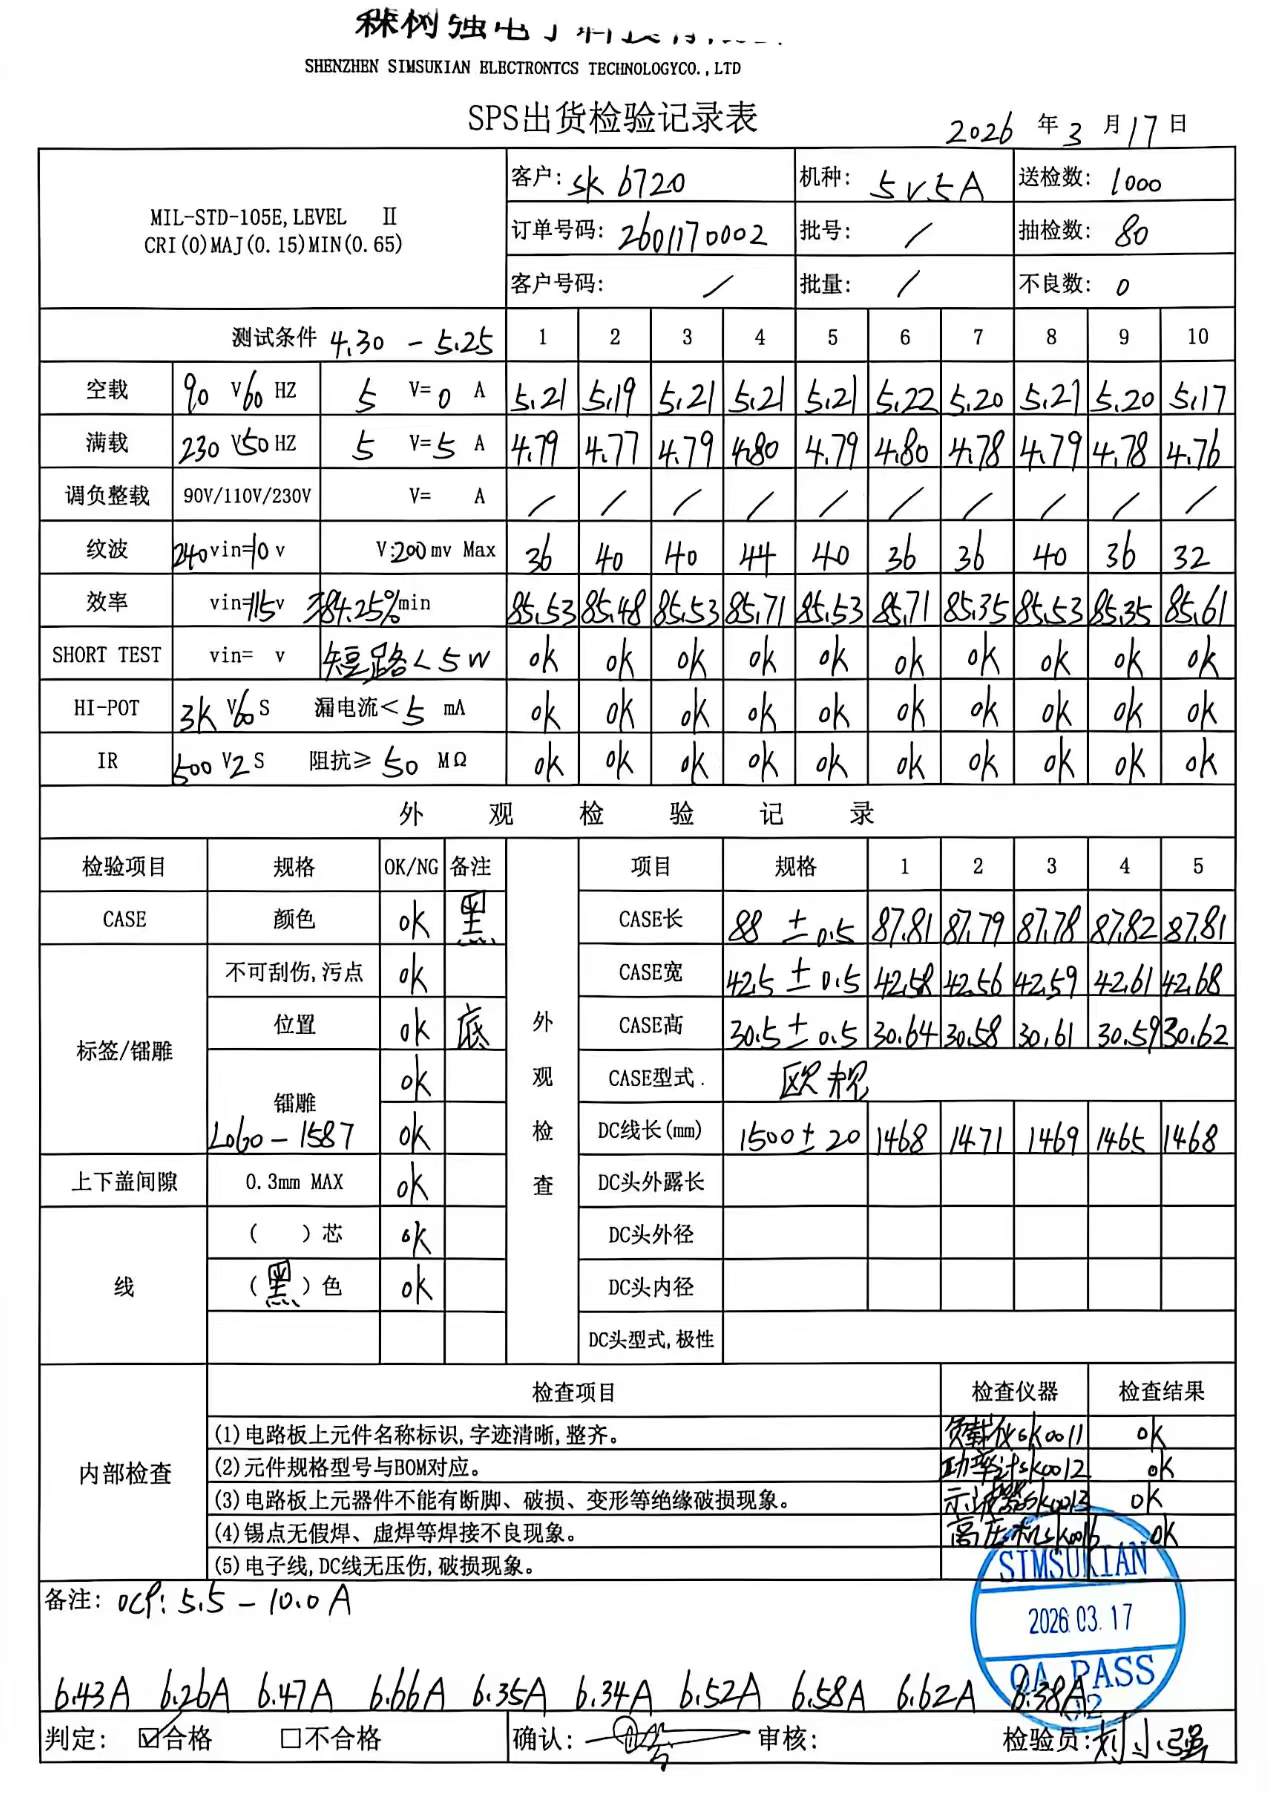 SHENZHEN SIMSUKIAN ELECTRONTCS TECHNOLOGYCO.,LTD
SPS出货检验记录表
2026 年 3 月 17 日
MIL-STD-105E,LEVEL Ⅱ
CRI(0)MAJ(0.15)MIN(0.65)
客户: SK 6720 机种: 5V5A 送检数: 1000
订单号码: 2601170002 批号: / 抽检数: 80
客户号码: / 批量: / 不良数: 0
测试条件 4.30 - 5.25 1 2 3 4 5 6 7 8 9 10
空载 90 V 60 HZ 5 V= 0 A 5.21 5.19 5.21 5.21 5.21 5.22 5.20 5.21 5.20 5.17
满载 230 V 50 HZ 5 V= 5 A 4.79 4.77 4.79 4.80 4.79 4.80 4.78 4.79 4.78 4.76
调负整载 90V/110V/230V V= A / / / / / / / / / /
纹波 240 vin=10 v V:200 mv Max 36 40 40 44 40 36 36 40 36 32
效率 vin=115v 84.25%min 85.53 85.48 85.53 85.71 85.53 85.71 85.35 85.53 85.35 85.61
SHORT TEST vin= v 短路<5W ok ok ok ok ok ok ok ok ok ok
HI-POT 3K V 60 S 漏电流< 5 mA ok ok ok ok ok ok ok ok ok ok
IR 500 V 2 S 阻抗≥ 50 MΩ ok ok ok ok ok ok ok ok ok ok
外观检验记录
检验项目 规格 OK/NG 备注 项目 规格 1 2 3 4 5
CASE 颜色 ok 黑 CASE长 88 ±0.5 87.81 87.79 87.78 87.82 87.81
不可刮伤,污点 ok CASE宽 42.5 ± 0.5 42.58 42.56 42.59 42.61 42.68
标签/镭雕 位置 ok 底 外观检查 CASE高 30.5 ± 0.5 30.64 30.58 30.61 30.59 30.62
镭雕 ok CASE型式. 欧规
LOGO-1587 ok DC线长(mm) 1500±20 1468 1471 1469 1465 1468
上下盖间隙 0.3mm MAX ok DC头外露长
线 ( )芯 ok DC头外径
(黑)色 ok DC头内径
DC头型式,极性
内部检查 检查项目 检查仪器 检查结果
(1)电路板上元件名称标识,字迹清晰,整齐。 负载仪SK0011 ok
(2)元件规格型号与BOM对应。 功率计SK0012 ok
(3)电路板上元器件不能有断脚、破损、变形等绝缘破损现象。 示波器SK0013 ok
(4)锡点无假焊、虚焊等焊接不良现象。 高压机SK0016 ok
(5)电子线,DC线无压伤,破损现象。
SIMSUKIAN
备注: OCP: 5.5 - 10.0A
2026.03.17
QA PASS
02
6.43A 6.26A 6.47A 6.66A 6.35A 6.34A 6.52A 6.58A 6.62A 6.38A
判定: ☑合格 □不合格 确认: 审核: 检验员: 刘小强